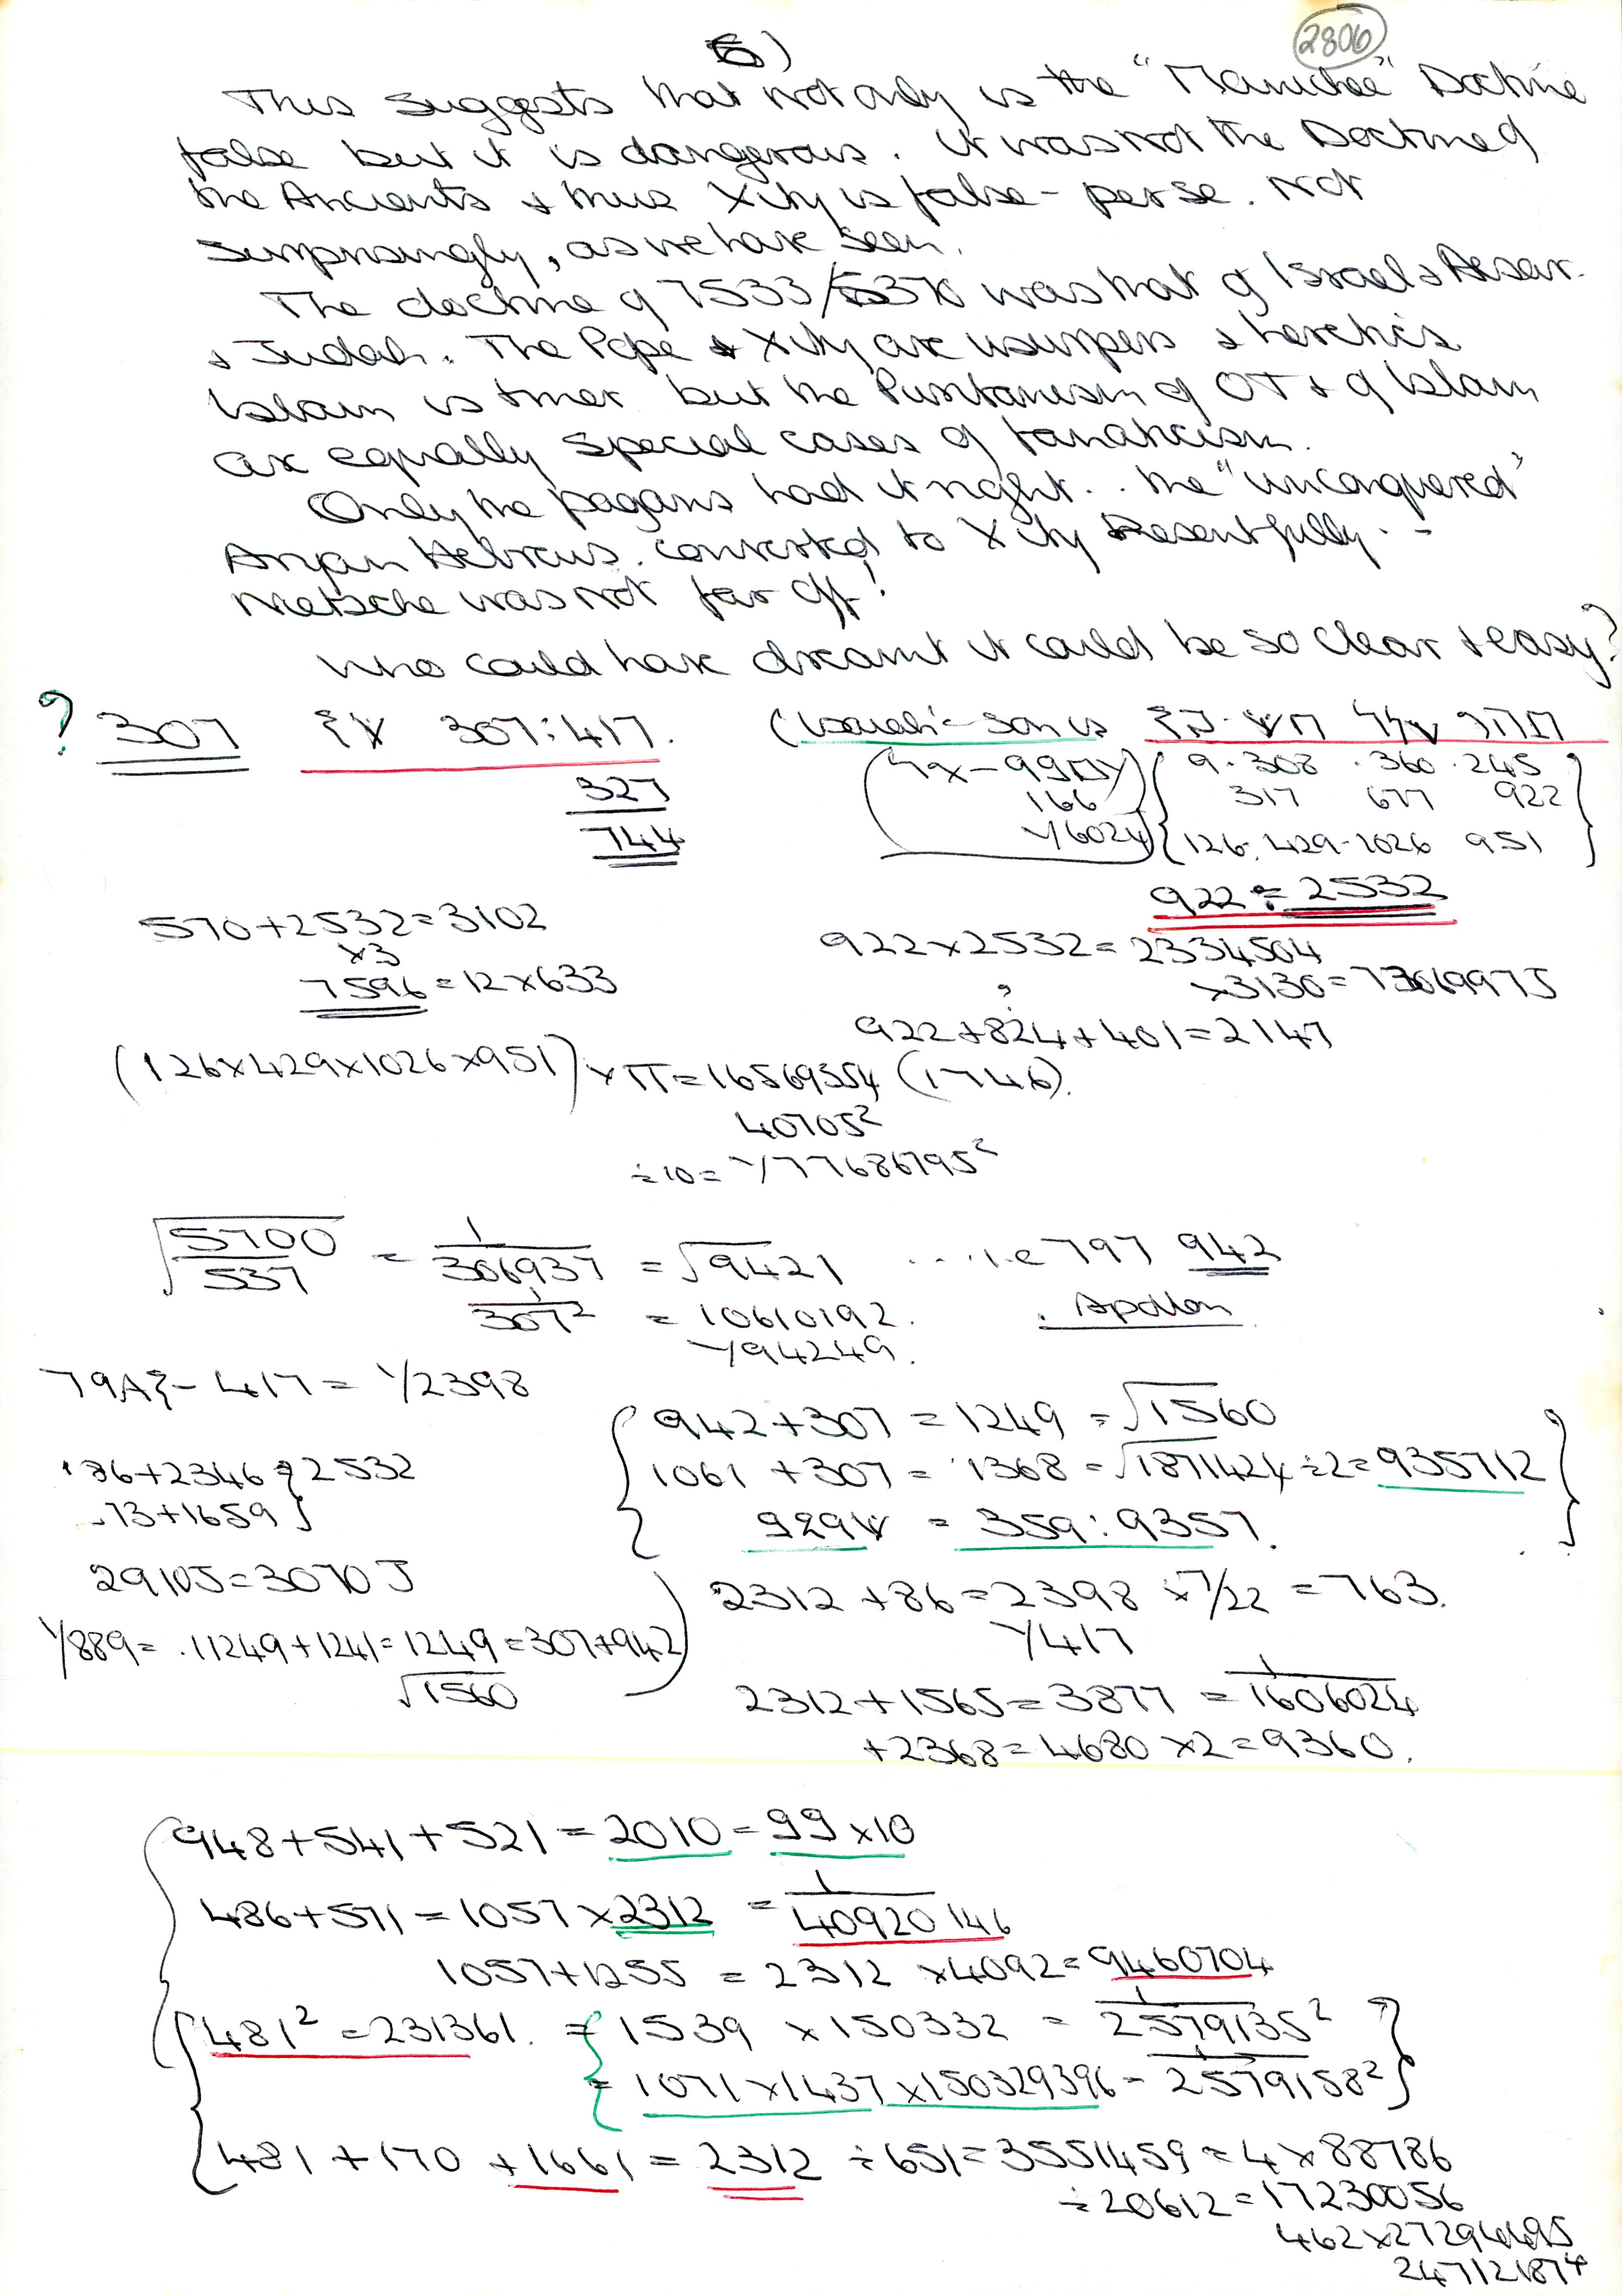 2806
6)
This suggests that not only is the "Manichee" Doctrine
false but it is dangerous. It was not the Doctrine of
the Ancients & thus Xity is false - per se. Not
surprisingly, as we have seen.
The doctrine of 7533/ was that of Israel &
& Judah. The Pope & Xity are usurpers &
Islam is truer but the Puritanism of OT & of Islam
are equally special cases of fanaticism.
Only the pagans had it right.. the "unconquered"
Aryan Hebrews. converted to Xity Resentfully. -
Nietsche was not far off!
Who could have dreamt it could be so clear & easy?
? 307 307:417.
327
744
9.308 .360 .245
166 317 677 922
1/6024 126. 429-1026 951
922 ÷ 2532
570+2532=3102
×3
7596=12×633
922×2532=2334504
×3130=73069975
?
922+824+401=2147
(126×429×1026×951)×π=16569354 (1746).
40705²
÷10=1/77686795²
√5700/537 = 1/306937 = √9421 ...i.e 797 942
1/307² = 10610192. . Apollon
1/94249.
- 417 = 1/2398
942+307 = 1249 = √1560
1061 +307 = 1368 = √1871424 ÷2=935712
= 359:9357.
+2346 2532
73+1659
2910J=3070J
2312 +86=2398 ×7/22 =763.
1/417
1/889= .11249+1241=1249=307+942
√1560
2312+1565=3877 = 1/1606024
+2368=4680 ×2=9360.
948+541+521=2010=99×10
486+571=1057×2312 = 1/40920146
1057+1255 = 2312 ×4092=9460704
481² =231361. = 1539 ×150332 = 1/2579135²
= 1071×1437×150329396 = 1/2579158²
481 +170 +1661=2312 ÷651=3551459=4×88786
÷20612=17230056
462×27294495
247121874